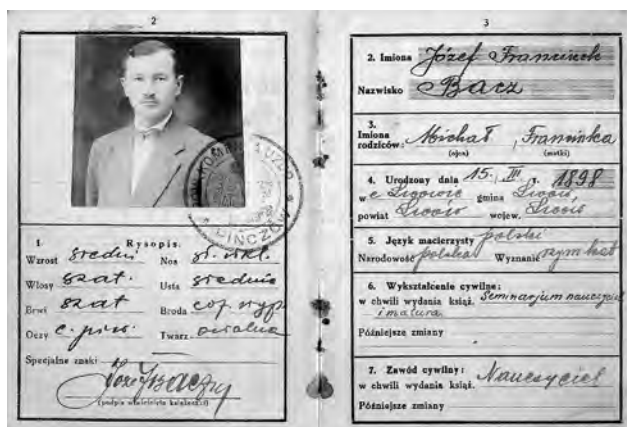 2
1 Rysopis.
Wzrost średni Nos
Włosy szat. Usta średnie
Brwi szat Broda
Oczy c. piw. Twarz owalna
Specjalne znaki
(podpis właściciela książeczki)
PINCZÓW
3
2. Imiona Józef Franciszek
Nazwisko Bacz
3.
Imiona
rodziców: Michał, Franciszka
(ojca) (matki)
4. Urodzony dnia 15. III r. 1898
w gmina
powiat wojew.
5. Język macierzysty polski
Narodowość polska Wyznanie rzym kat
6. Wykształcenie cywilne:
w chwili wydania książ. Seminarjum nauczyciel
i matura.
Późniejsze zmiany
7. Zawód cywilny:
w chwili wydania książ. Nauczyciel
Późniejsze zmiany